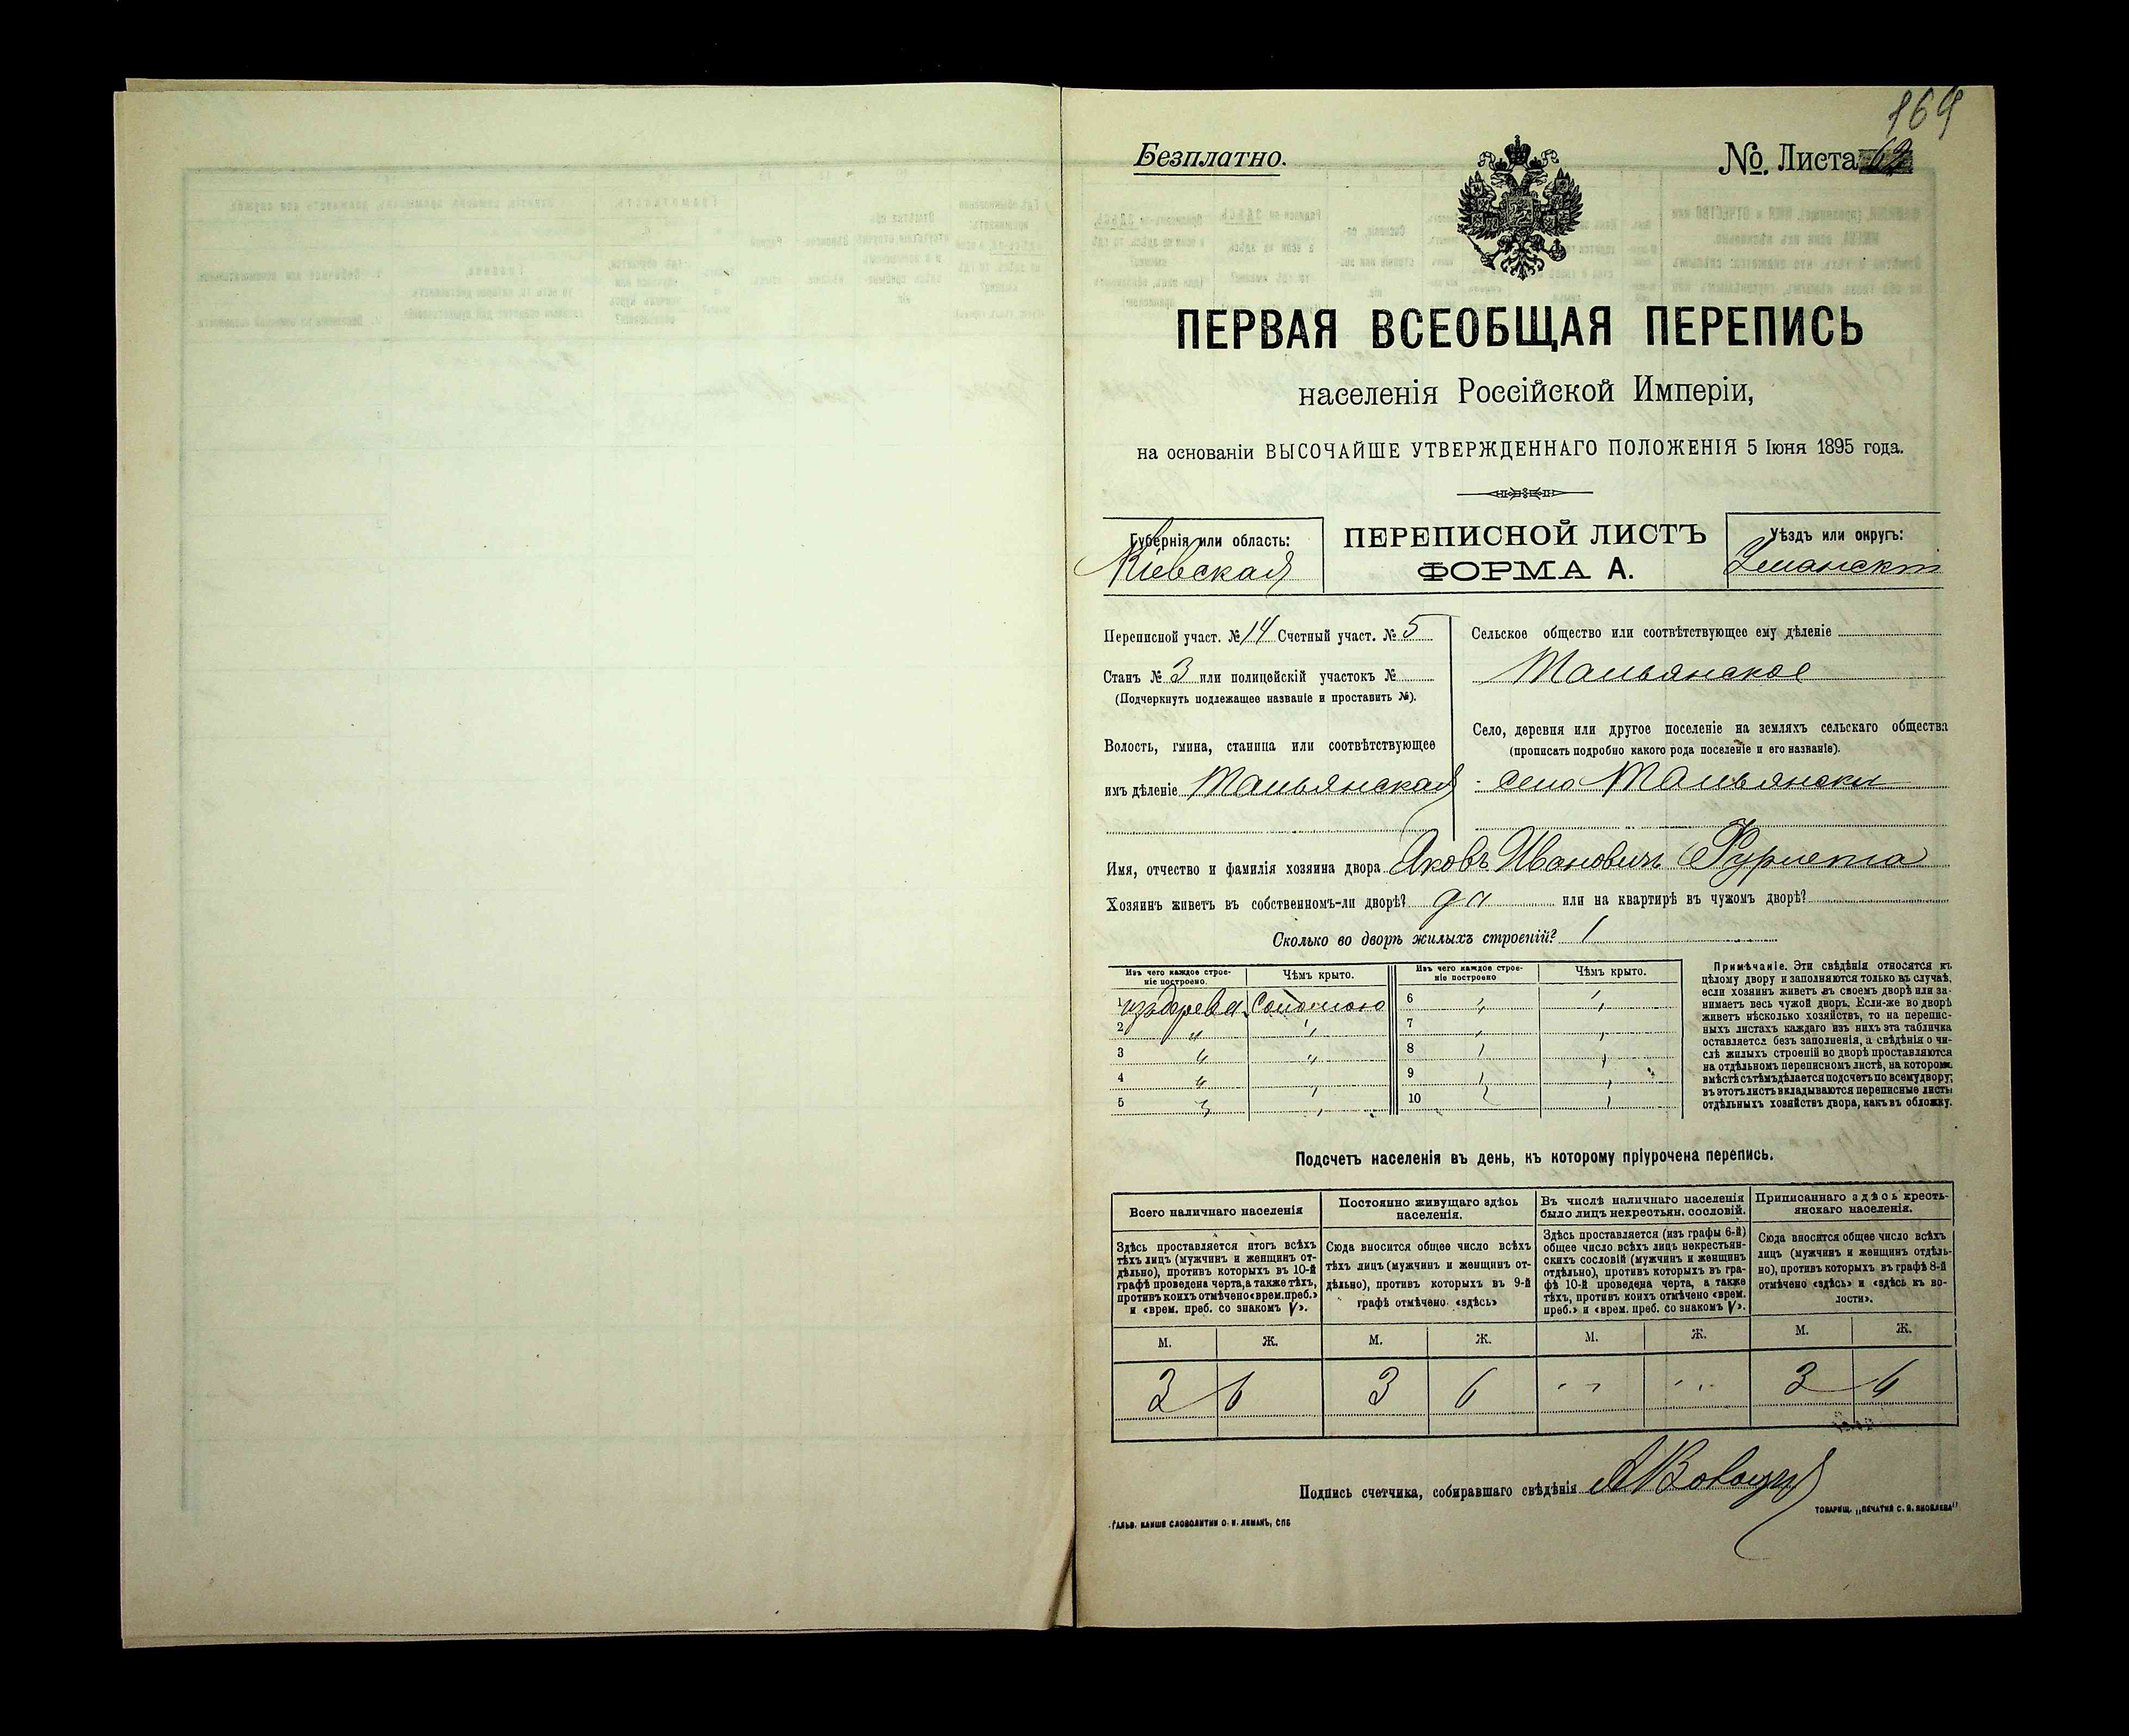 169
Безплатно.
№. Листа 62
ПЕРВАЯ ВСЕОБЩАЯ ПЕРЕПИСЬ
населенія Россійской Имперіи,
на основаніи ВЫСОЧАЙШЕ УТВЕРЖДЕННАГО ПОЛОЖЕНІЯ 5 Іюня 1895 года.
Губернія или область:
Кіевская
ПЕРЕПИСНОЙ ЛИСТЪ
ФОРМА А.
Уѣздъ или округъ:
Уманскій
Переписной участ. № 14 Счетный участ. № 5
Станъ № 3 или полицейскій участокъ №
(Подчеркнуть подлежащее названіе и проставить №).
Волость, гмина, станица или соотвѣтствующее
имъ дѣленіе Тальянская
Сельское общество или соотвѣтствующее ему дѣленіе
Тальянское
Село, деревня или другое поселеніе на земляхъ сельскаго общества
(прописать подробно какого рода поселеніе и его названіе).
село Тальянки
Имя, отчество и фамилія хозяина двора Яковъ Ивановичъ
Хозяинъ живетъ въ собственномъ-ли дворѣ? да или на квартирѣ въ чужомъ дворѣ?
Сколько во дворѣ жилыхъ строеній? 1
Изъ чего каждое строе-
ніе построено.
Чѣмъ крыто.
Изъ чего каждое строе-
ніе построено
Чѣмъ крыто.
1 изъ дерева Соломою 6
2 7
3 8
4 9
5 10
Примѣчаніе. Эти свѣдѣнія относятся къ
цѣлому двору и заполняются только въ случаѣ,
если хозяинъ живетъ въ своемъ дворѣ или за-
нимаетъ весь чужой дворъ. Если-же во дворѣ
живетъ нѣсколько хозяйствъ, то на перепис-
ныхъ листахъ каждаго изъ нихъ эта табличка
оставляется безъ заполненія, а свѣдѣнія о чи-
слѣ жилыхъ строеній во дворѣ проставляются
на отдѣльномъ переписномъ листѣ, на которомъ
вмѣстѣ съ тѣмъ дѣлается подсчетъ по всему двору;
въ этотъ листъ вкладываются переписные листы
отдѣльныхъ хозяйствъ двора, какъ въ обложку.
Подсчетъ населенія въ день, къ которому пріурочена перепись.
Всего наличнаго населенія
Здѣсь проставляется итогъ всѣхъ
тѣхъ лицъ (мужчинъ и женщинъ от-
дѣльно), противъ которыхъ въ 10-й
графѣ проведена черта, а также тѣхъ,
противъ коихъ отмѣчено «врем. преб.»
и «врем. преб. со знакомъ V».
Постоянно живущаго здѣсь
населенія.
Сюда вносится общее число всѣхъ
тѣхъ лицъ (мужчинъ и женщинъ от-
дѣльно), противъ которыхъ въ 9-й
графѣ отмѣчено «здѣсь»
Въ числѣ наличнаго населенія
было лицъ некрестьян. сословій.
Здѣсь проставляется (изъ графы 6-й)
общее число всѣхъ лицъ некрестьян-
скихъ сословій (мужчинъ и женщинъ
отдѣльно), противъ которыхъ въ гра-
фѣ 10-й проведена черта, а также
тѣхъ, противъ коихъ отмѣчено «врем.
преб.» и «врем. преб. со знакомъ V».
Приписаннаго здѣсь кресть-
янскаго населенія.
Сюда вносится общее число всѣхъ
лицъ (мужчинъ и женщинъ отдѣль-
но), противъ которыхъ въ графѣ 8-й
отмѣчено «здѣсь» и «здѣсь къ во-
лости».
М. Ж. М. Ж. М. Ж. М. Ж.
3 6 3 6 " " " " 3 6
Подпись счетчика, собиравшаго свѣдѣнія
ГАЛЬВ. КЛИШЕ СЛОВОЛИТНИ О. И. ЛЕМАНЪ, СПБ
ТОВАРИЩ. „ПЕЧАТНЯ С. П. ЯКОВЛЕВА"